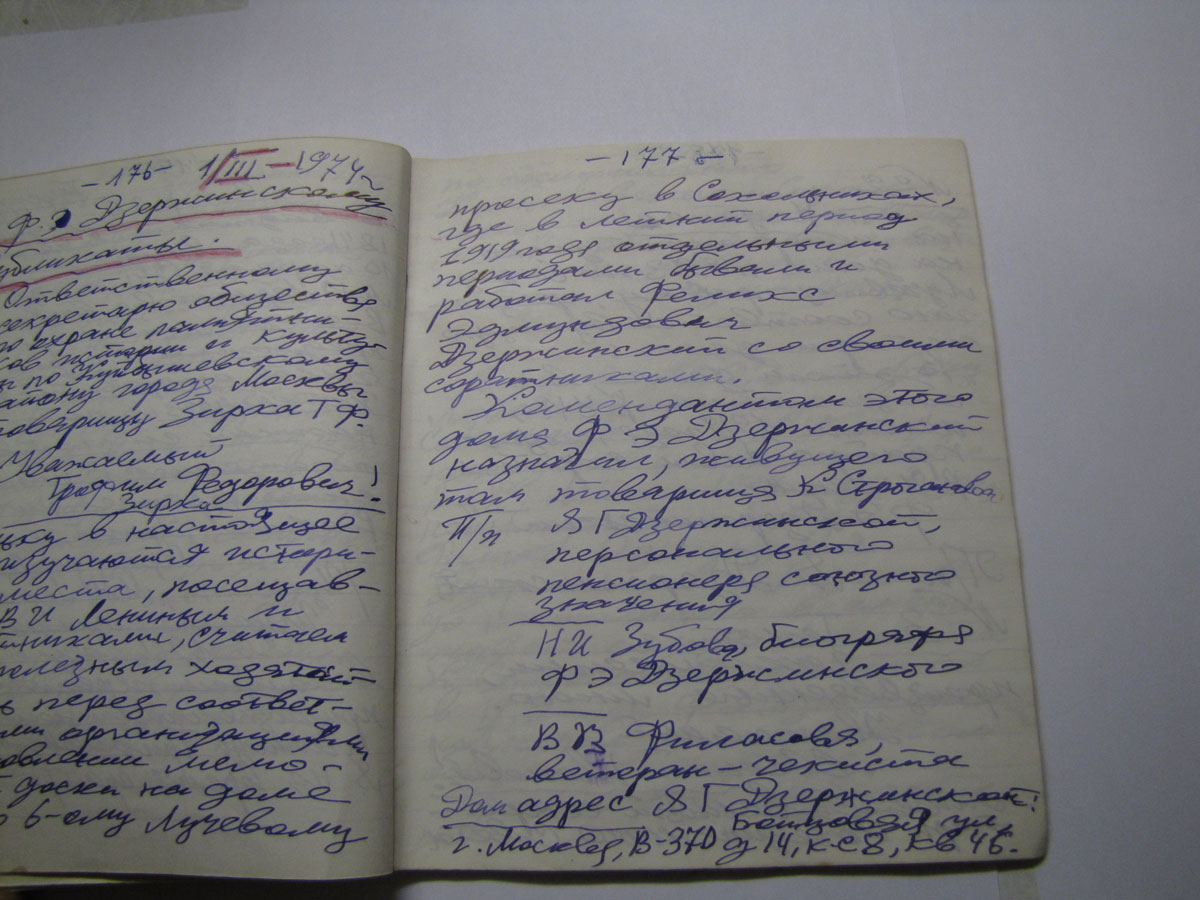 -176- 1/III-1974
Ф.Э Дзержинскому
убликаты.
Ответственному
секретарю общества
по охране памятни-
ов истории и культу-
ы по Куйбышевскому
айону города Москвы
товарищу Зирка Т Ф.
Уважаемый
Трофим Федорович!
Зирка
ьку в настоящее
изучаются истори-
места, посещав-
В И Лениным и
тниками, считаем
полезным ходатай
ь перед соответ-
ми организациями
овлении мемо-
доски на доме
о 6-ому Лучевому
-177-
просеку в Сокольниках,
где в летний период
1919 года отдельными
периодами бывали и
работал Феликс
Эдмундович
Дзержинский со своими
соратниками.
Комендантом этого
дома Ф Э Дзержинский
назначил, живущего
там товарища
П/п Я Г Дзержинской,
персонального
пенсионера союзного
значения
Н И Зубова, биографа
Ф Э Дзержинского
В В Филасова,
ветеран-чекиста
Дом адрес Я Г Дзержинской:
ул,
г. Москва, В-370 д 14, к-с 8, кв 46.